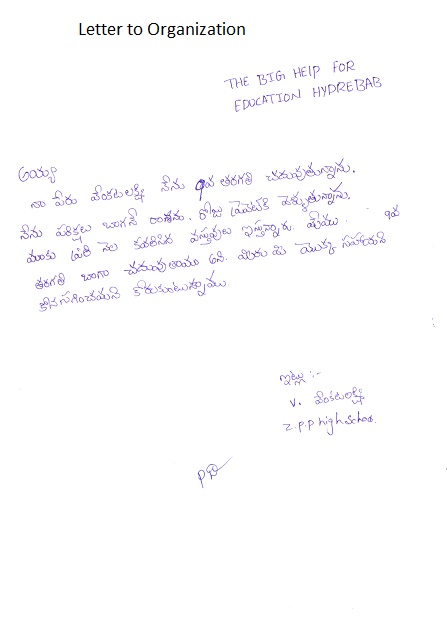 Letter to Organization
THE BIG HELP FOR
EDUCATION HYDREBAB
అయ్యా
నా పేరు వేంకటలక్ష్మి నేను 9వ తరగతి చదువుతున్నాను.
నేను పరిక్షలు బాగానే రాశాను. రోజు ప్రైవేట్‌కి వెళ్ళుతున్నాను.
మాకు ప్రతి నెల కావలసిన వస్తువులు ఇస్తున్నారు. మేము 9వ
తరగతి బాగా చదువుతాము అని. మీరు మీ యొక్క సహాయని
కోనసగించమని కోరుకుంటున్నాము.
ఇట్లు :-
V. వేంకటలక్ష్మి
Z.P.P high School.